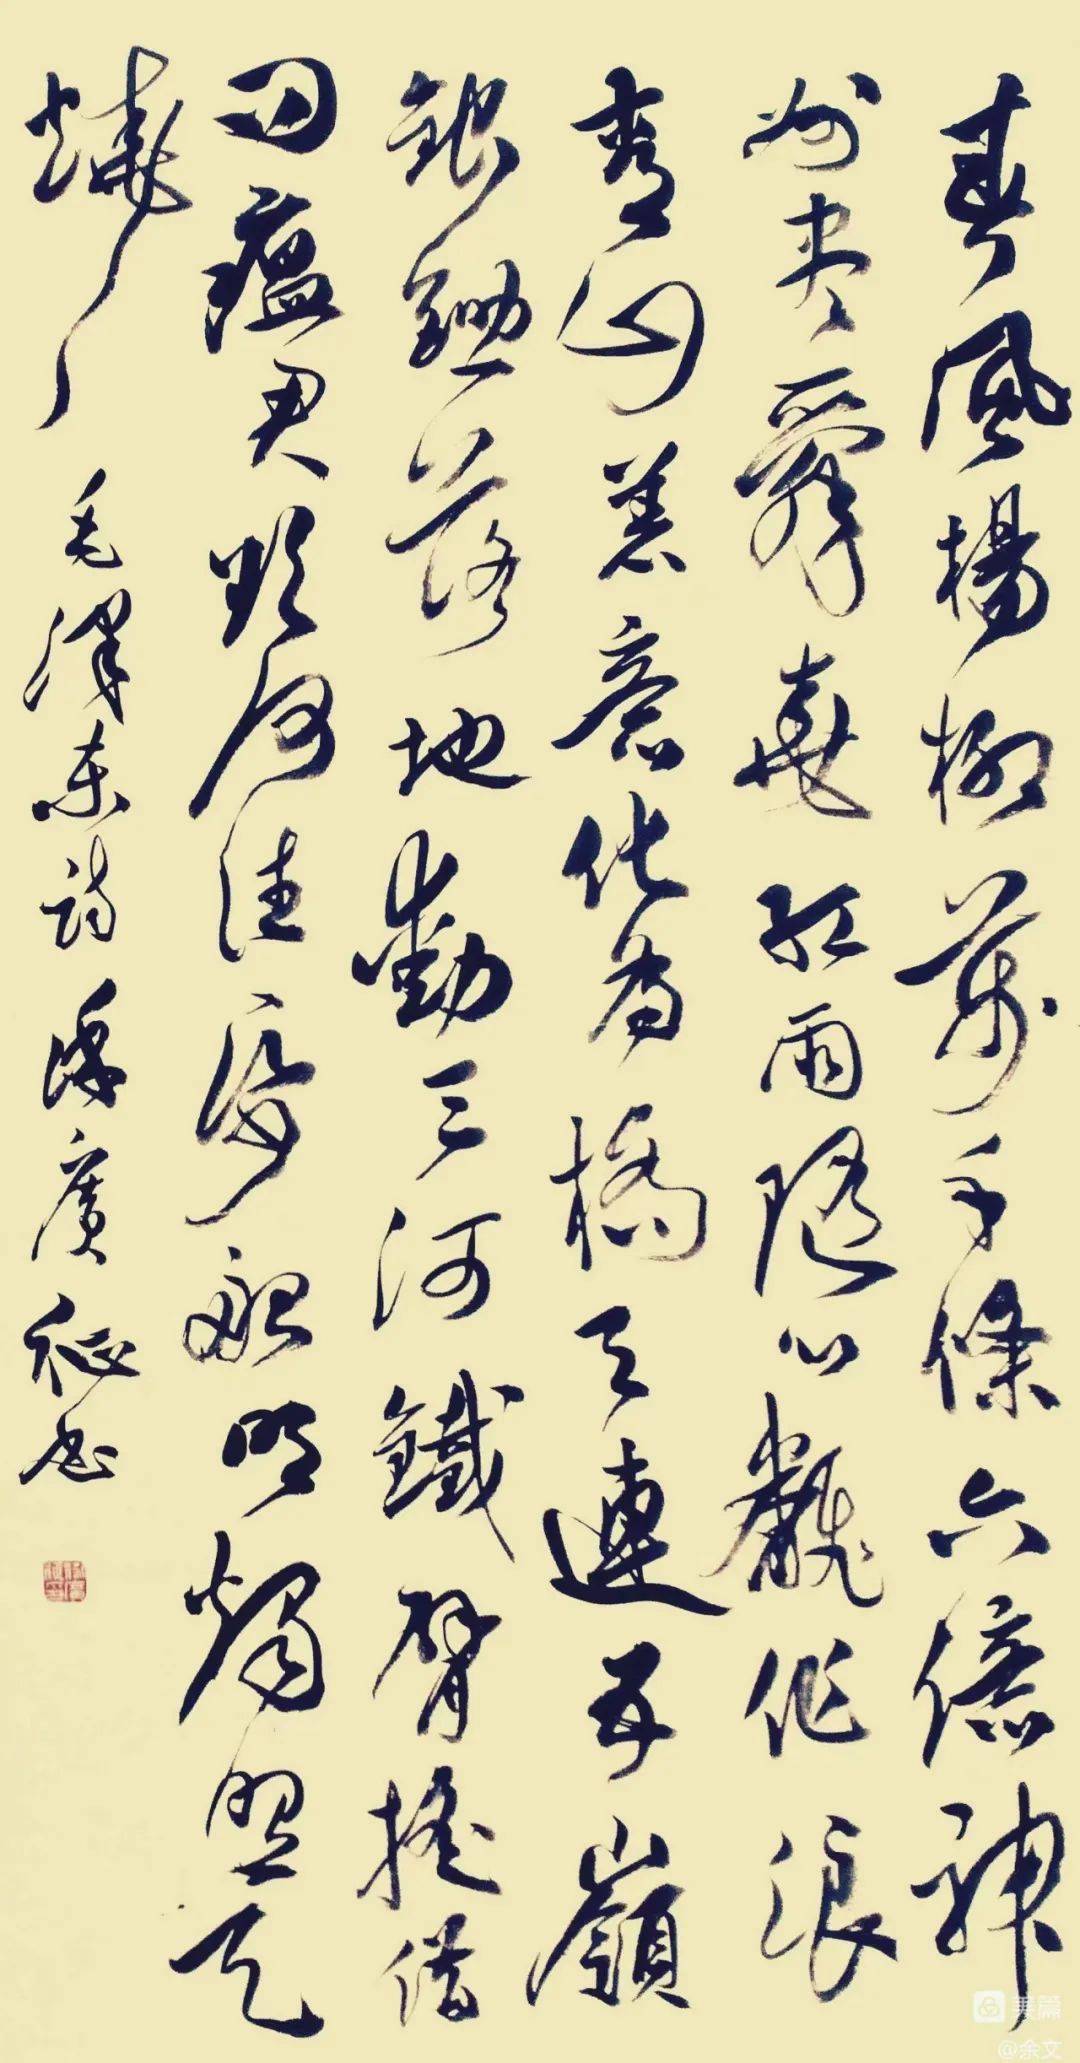 春風楊柳萬千條六億神
州盡舜堯紅雨隨心飜作浪
青山着意化為橋天連五嶺
銀鋤落地動三河鐵臂搖借
問瘟君欲何往紙船明燭照天
燒
毛澤東詩 廣征书
美篇
@余文